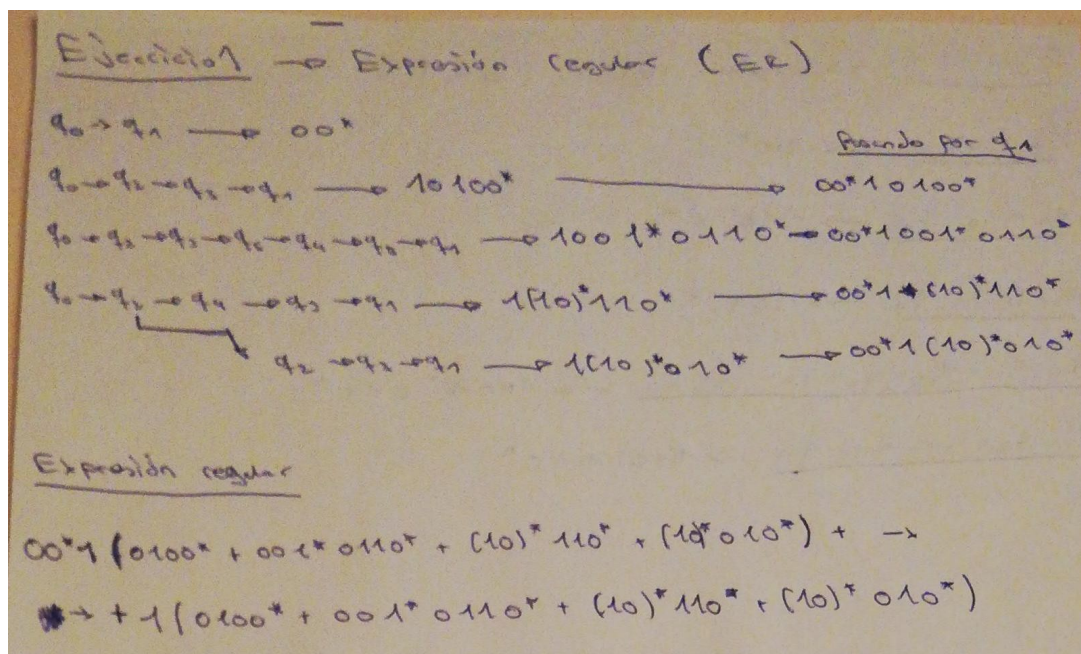 Ejercicio 1 → Expresión regular (ER)
q0 → q1 → 00*
Pasando por q1
q0 → q2 → q3 → q1 → 10100* → 00*10100*
q0 → q2 → q3 → q5 → q4 → q3 → q1 → 1001*0110* → 00*1001*0110*
q0 → q2 → q4 → q3 → q1 → 1(10)*110* → 00*1(10)*110*
q2 → q3 → q1 → 1(10)*010* → 00*1(10)*010*
Expresión regular
00*1(0100* + 001*0110* + (10)*110* + (10)*010*) + →
→ + 1(0100* + 001*0110* + (10)*110* + (10)*010*)